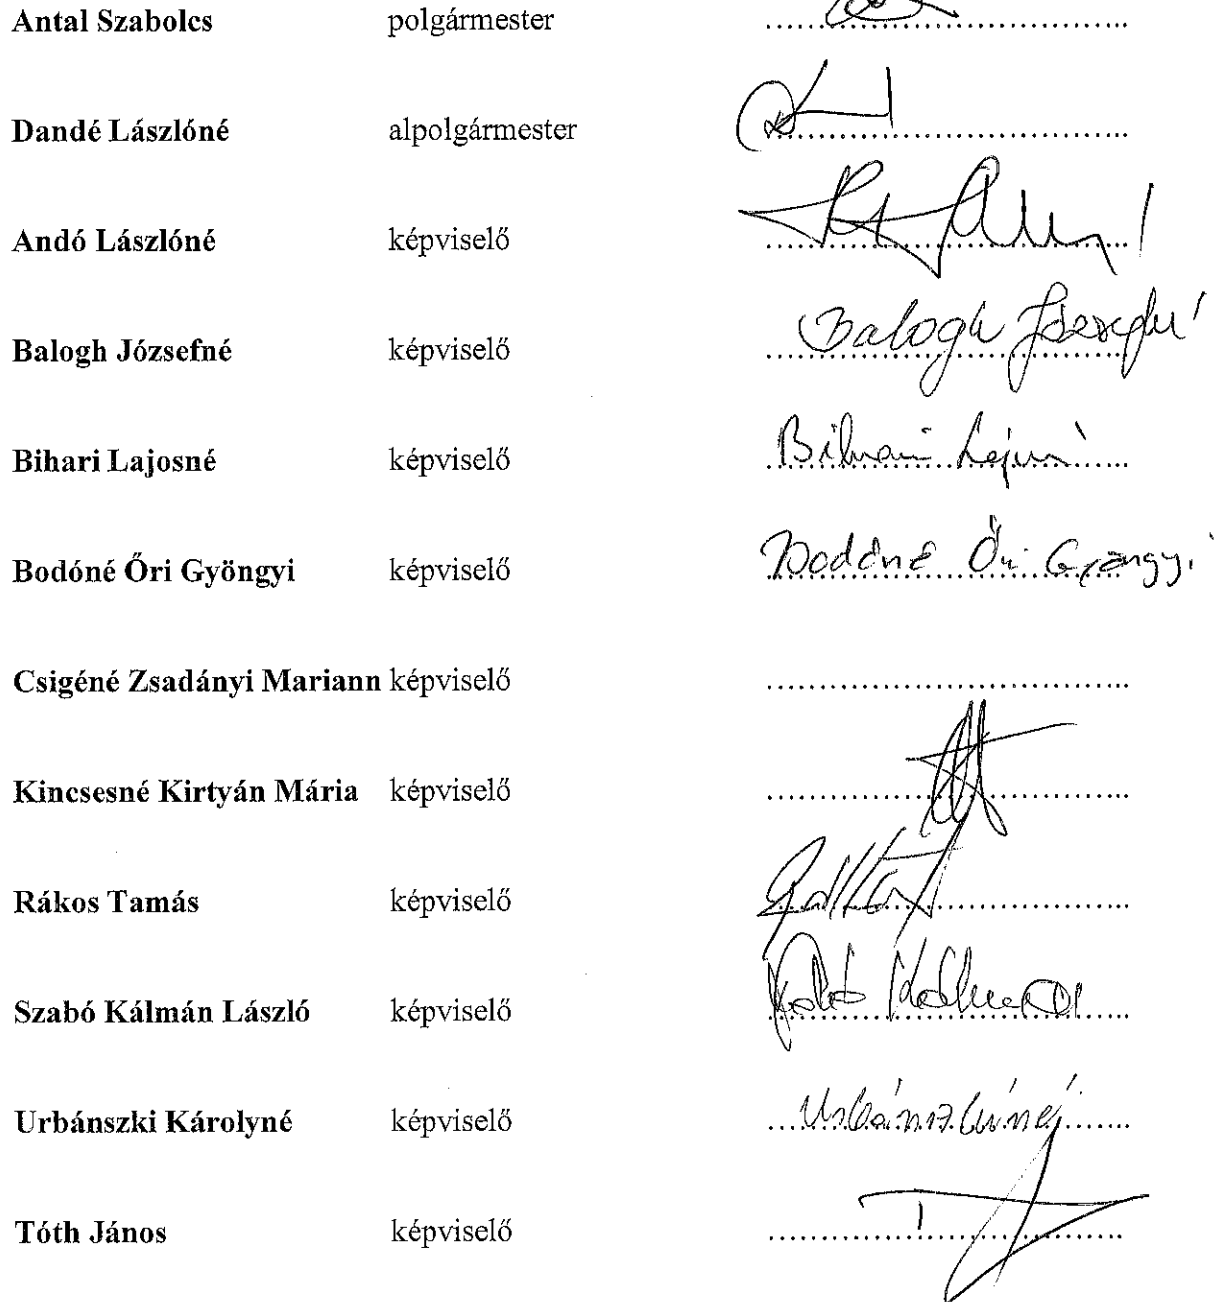 Antal Szabolcs polgármester ..................................
Dandé Lászlóné alpolgármester ..................................
Andó Lászlóné képviselő ..................................
Balogh Józsefné képviselő Balogh Józsefné
Bihari Lajosné képviselő Bihari Lajosné
Bodóné Őri Gyöngyi képviselő Bodóné Őri Gyöngyi
Csigéné Zsadányi Mariann képviselő ..................................
Kincsesné Kirtyán Mária képviselő ..................................
Rákos Tamás képviselő ..................................
Szabó Kálmán László képviselő ..................................
Urbánszki Károlyné képviselő Urbánszkiné
Tóth János képviselő ..................................